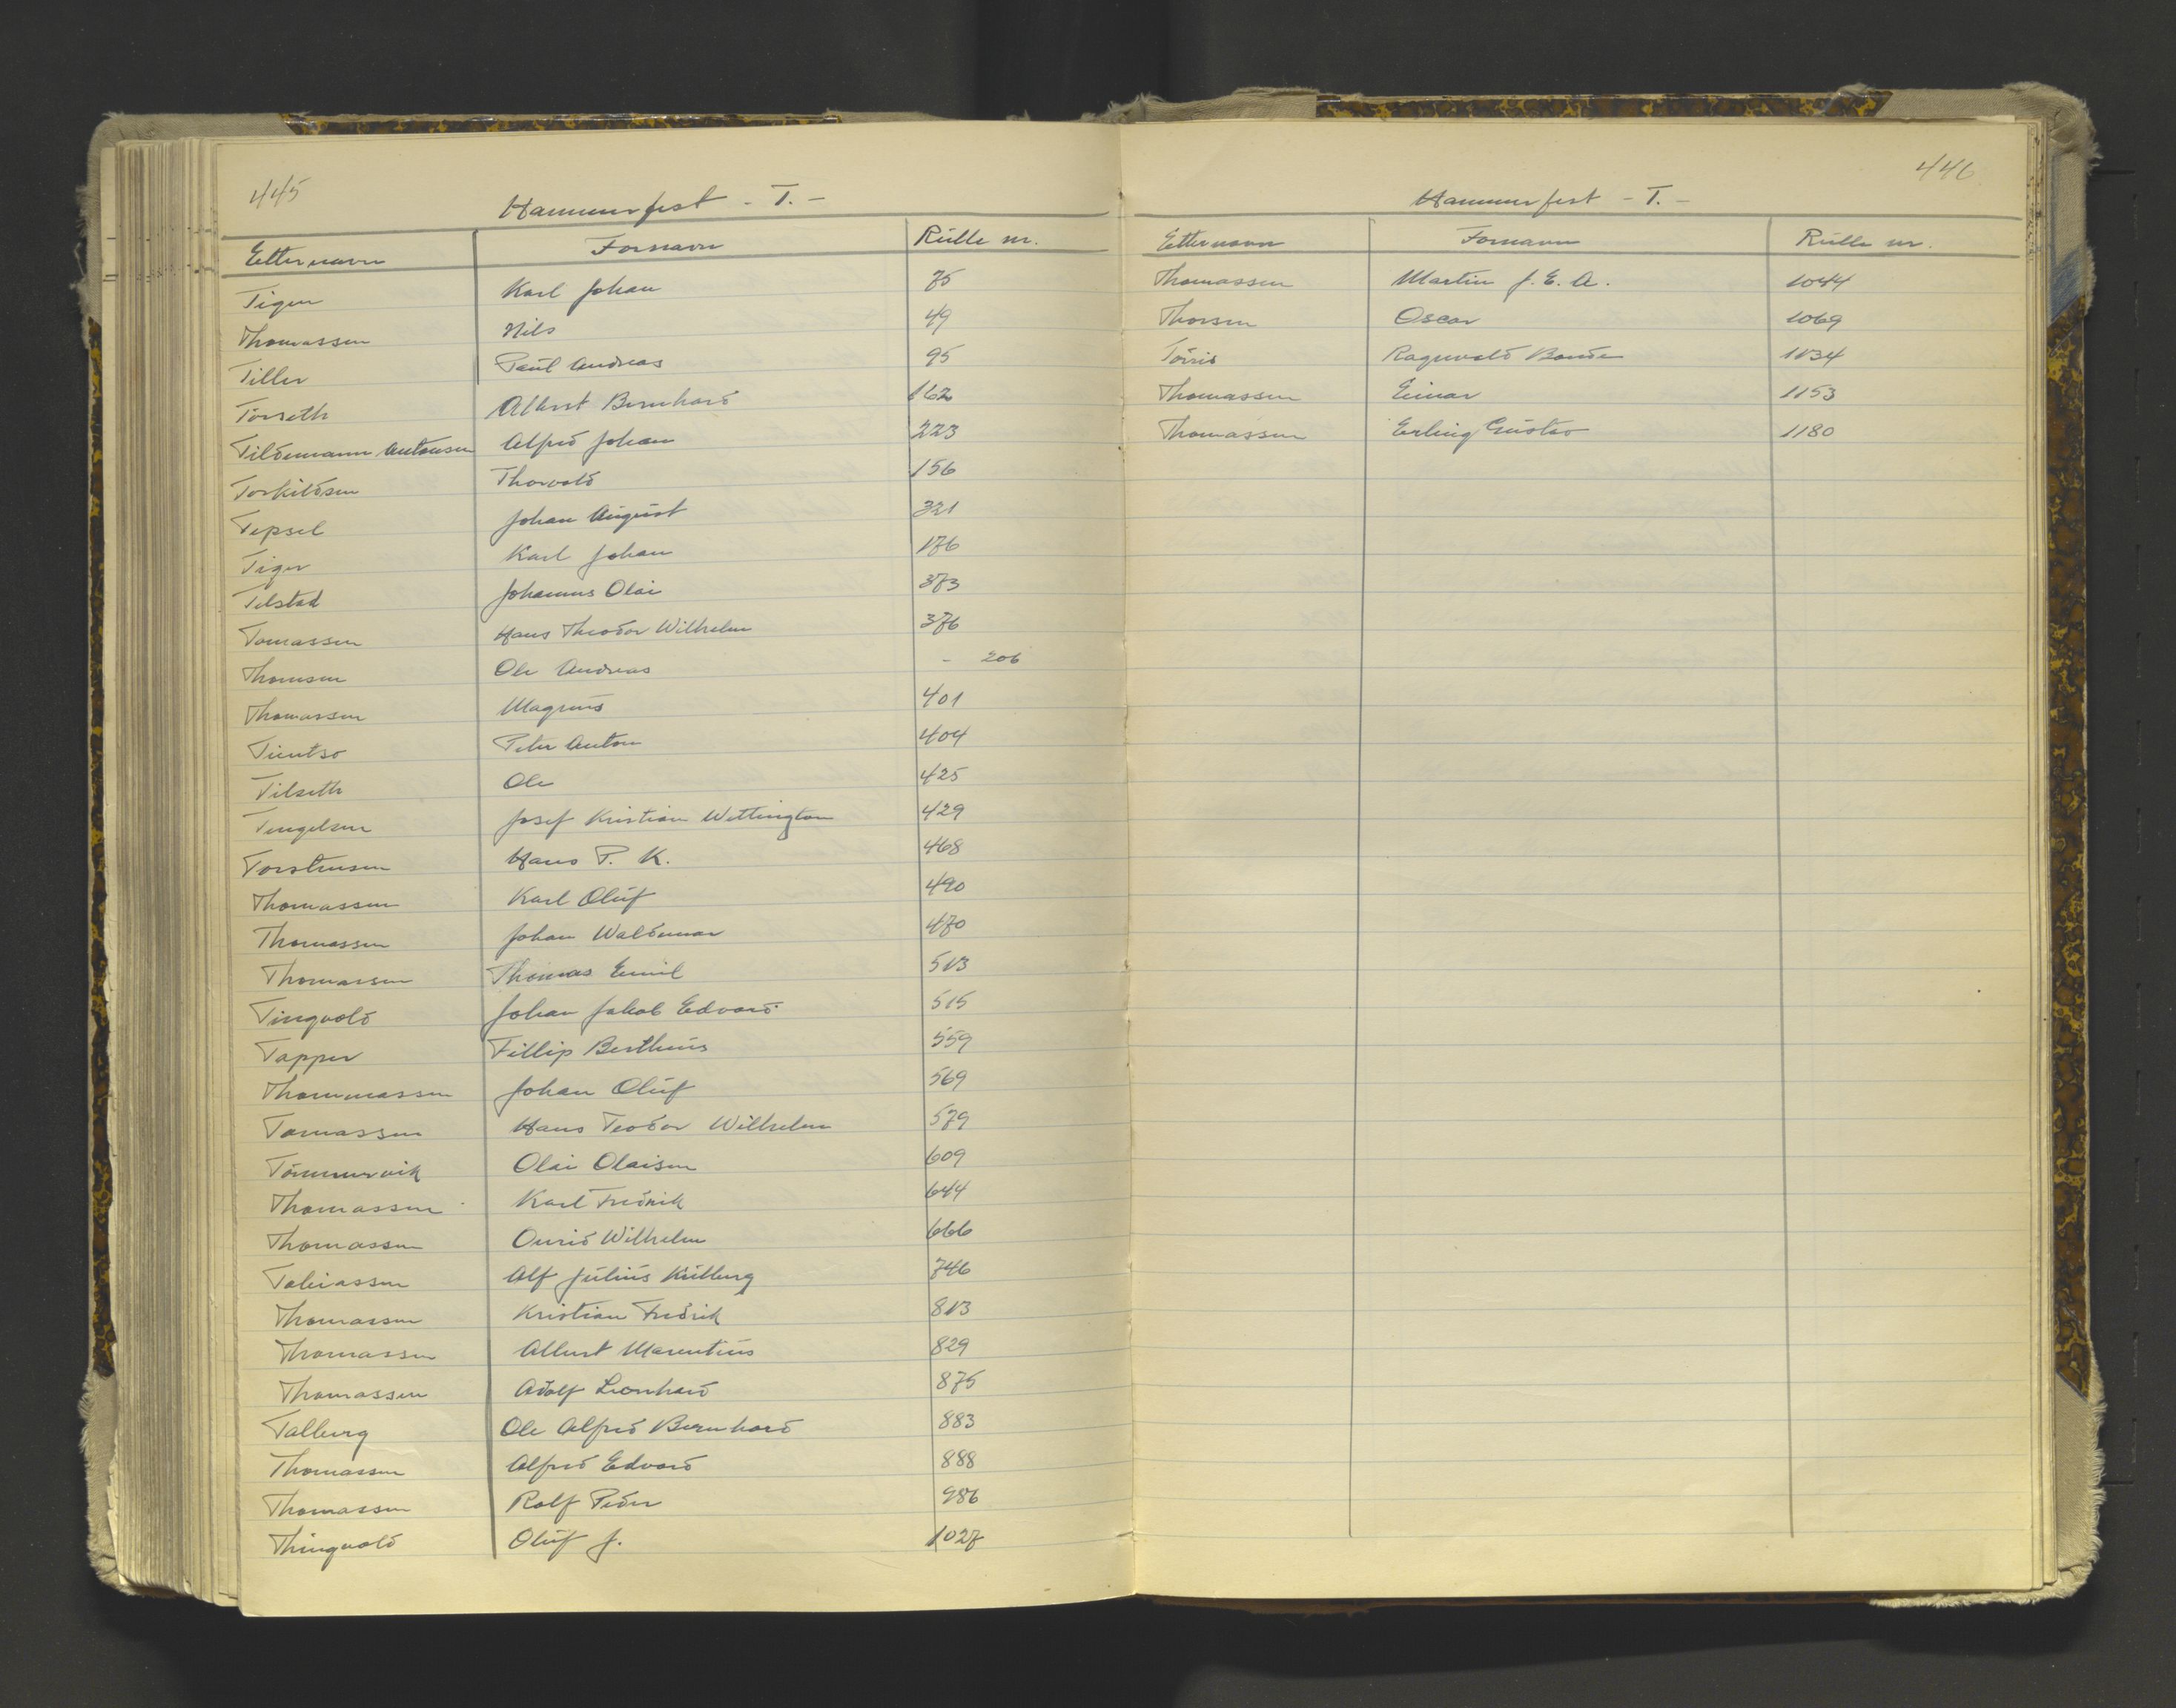 445
Hammerfest - T. -
Etternavn Fornavn Rulle nr.
Tiger Karl Johan 75
Thomassen Nils 49
Tiller Paul Andreas 95
Torseth Albert Bernhard 162
Tildemann Antonsen Alfred Johan 223
Torkildsen Thorvald 156
Tepsel Johan August 321
Tiger Karl Johan 176
Tilstad Johannes Olai 373
Tomassen Hans Theodor Wilhelm 376
Thomsen Ole Andreas - 206
Thomassen Magnus 401
Tuntso Peter Anton 404
Tilseth Ole 425
Tengelsen Josef Kristian Wettington 429
Torstensen Hans P. K. 468
Thomassen Karl Oluf 490
Thomassen Johan Waldemar 470
Thomassen Thomas Emil 513
Tingvold Johan Jakob Edvard 515
Tapper Fillip Bertheus 559
Thommassen Johan Oluf 569
Tomassen Hans Teodor Wilhelm 579
Tømmervik Olai Olaisen 609
Thomassen Karl Fredrik 644
Thomassen Wilhelm 666
Tobiassen Alf Julius Kulberg 746
Thomassen Kristian Fredrik 813
Thomassen Albert Marentius 829
Thomassen Adolf Leonhard 875
Talberg Ole Alfred Bernhard 883
Thomassen Alfred Edvard 888
Thomassen Rolf Peder 986
Thingvold Oluf J. 1027
446
Hammerfest - T. -
Etternavn Fornavn Rulle nr.
Thomassen Martin J. E. A. 1044
Thorsen Oscar 1069
Ragnvald 1134
Thomassen Einar 1153
Thomassen Erling Gustav 1180